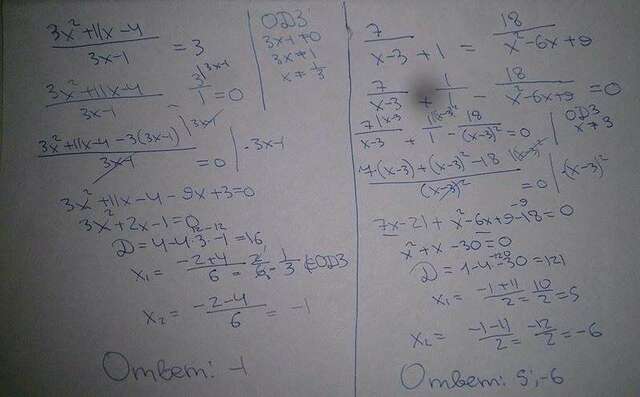 (3x²+11x-4)/(3x-1) = 3
ОДЗ
3x-1≠0
3x≠1
x≠1/3
(3x²+11x-4)/(3x-1) - 3/1 |3x-1 = 0
(3x²+11x-4-3(3x-1))/(3x-1) |3x-1 = 0 | ·3x-1
3x²+11x-4-9x+3=0
3x²+2x-1=0
D=4-4·3·-1=16
x₁= (-2+4)/6 = 2/6 = 1/3 ∉ОДЗ
x₂= (-2-4)/6 = -1
Ответ: -1
7/(x-3) + 1 = 18/(x²-6x+9)
7/(x-3) + 1/1 - 18/(x²-6x+9) = 0
7|x-3/(x-3) + 1|(x-3)²/1 - 18/(x-3)² = 0
ОДЗ
x≠3
(7(x-3)+(x-3)²-18)/(x-3)² |(x-3)² = 0 | ·(x-3)²
-9
7x-21+x²-6x+9-18=0
x²+x-30=0
D=1-4·-30=121
x₁= (-1+11)/2 = 10/2 = 5
x₂= (-1-11)/2 = -12/2 = -6
Ответ: 5;-6